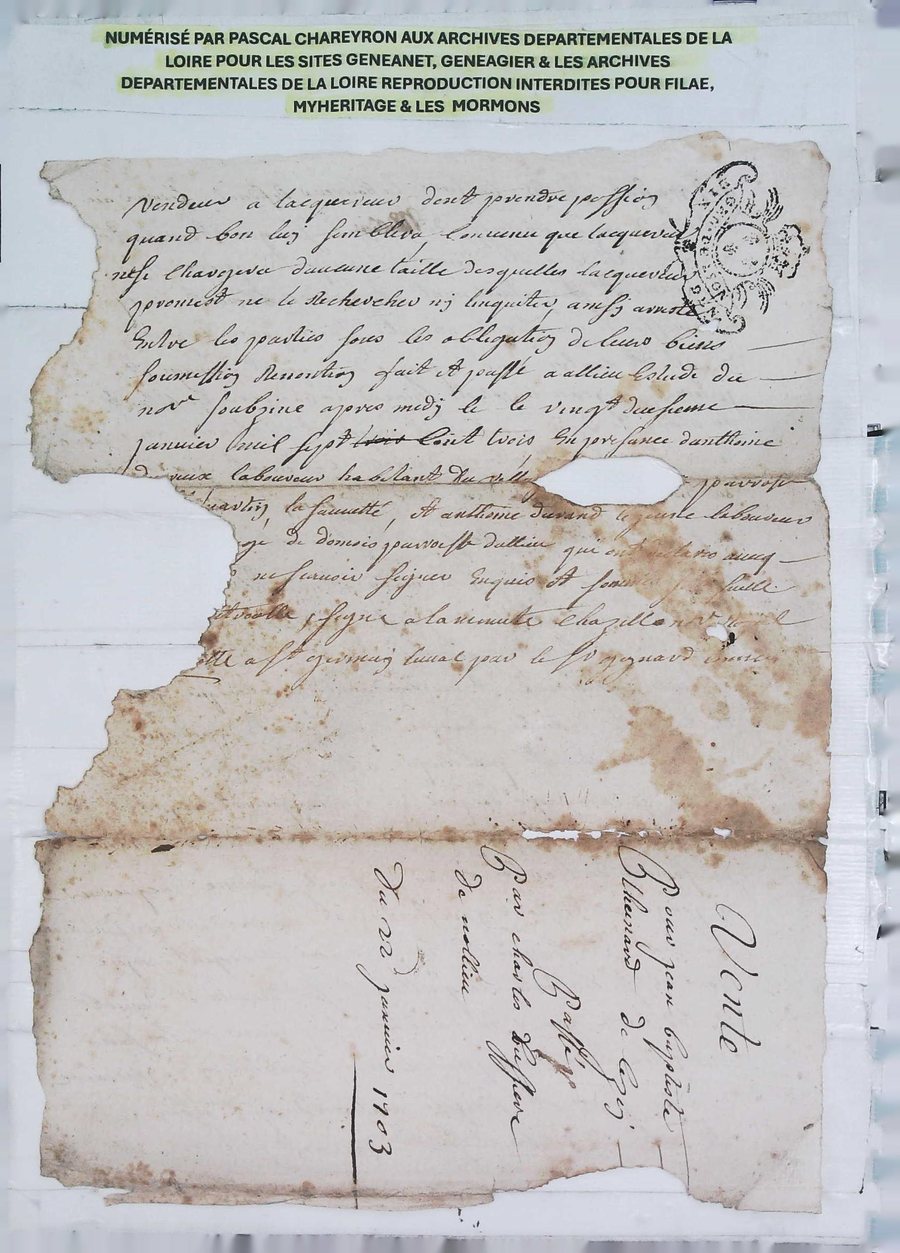 NUMÉRISÉ PAR PASCAL CHAREYRON AUX ARCHIVES DEPARTEMENTALES DE LA
LOIRE POUR LES SITES GENEANET, GENEAGIER & LES ARCHIVES
DEPARTEMENTALES DE LA LOIRE REPRODUCTION INTERDITES POUR FILAE,
MYHERITAGE & LES MORMONS
Vendeur a lacquereur dont prendre possion
quand bon luy semblera, Convenu que lacquereur
ne se Chargera daucune taille desquelles lacquereur
promest ne le Rechercher ny linquiter, ainsy arresté
Entre les parties sous les obligation de leurs biens
soumission Renontion fait et passé a allieu Estude du
nore soubzine apres midy le le vingt deusieme
janvier mil sept cent trois En presance danthoine
laboureur habitant du parroisse
la sauveté, Et anthoine durand le jeune laboureur
de domois parroisse dallieu qui ont
ne scavoir signer Enquis et
signe a la minute Chazillon
a st germain laval par le sr
Vente
Pour jean baptiste
de
Passé
Par charles
de nollieu
Du 22 janvier 1703